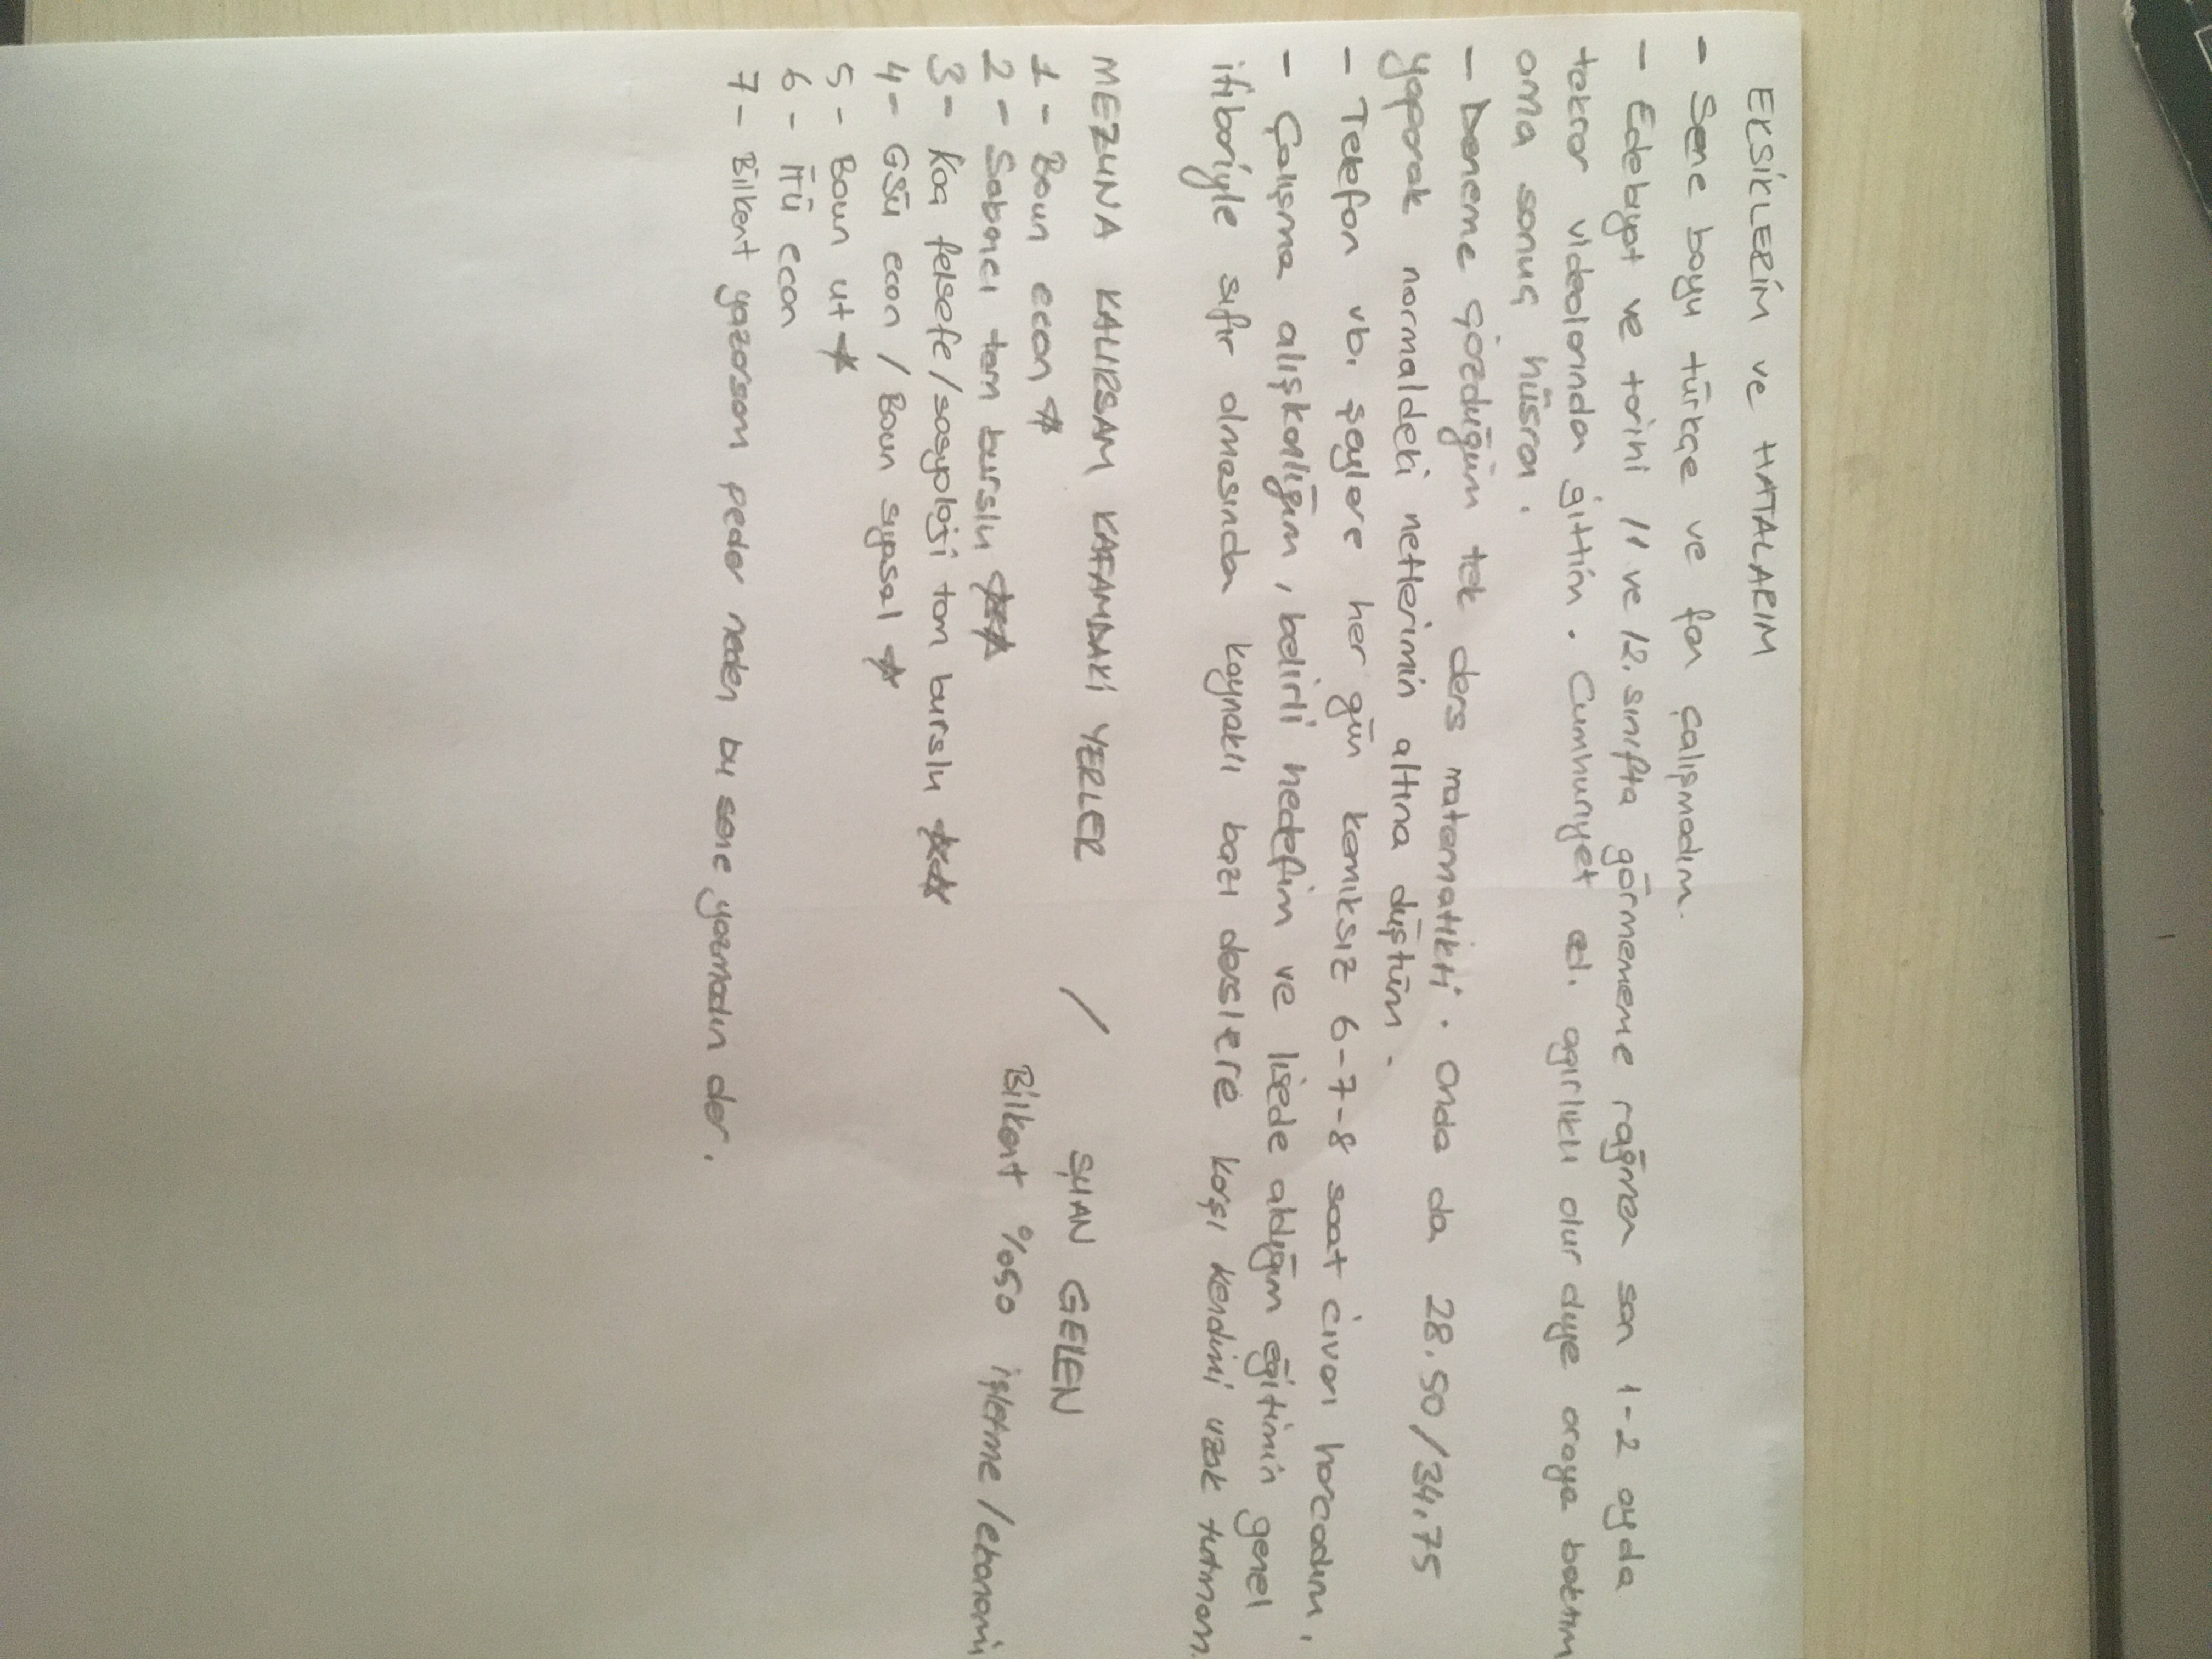 EKSİKLERİM ve HATALARIM
- Sene boyu türkçe ve fen çalışmadım.
- Edebiyat ve tarihi 11 ve 12. sınıfta görmememe rağmen son 1-2 ayda
tekrar videolarından gittim. Cumhuriyet ed. ağırlıklı olur diye oraya baktım
ama sonuç hüsran.
- Deneme çözdüğüm tek ders matematikti. Onda da 28.50/34.75
yaparak normaldeki netlerimin altına düştüm.
- Telefon vb. şeylere her gün komiksiz 6-7-8 saat civarı harcadım.
- Çalışma alışkanlığım, belirli hedefim ve lisede aldığım eğitimin genel
itibariyle sıfır olmasından kaynaklı bazı derslere karşı kendimi uzak tutmam.
MEZUNA KALIRSAM KAFAMDAKİ YERLER / ŞUAN GELEN
1 - Boun econ *
2 - Sabancı tam burslu ***
Bilkent %50 işletme/ekonomi
3 - Koç felsefe/sosyoloji tam burslu ***
4 - GSÜ econ / Boun siyasal *
5 - Boun ut *
6 - İTÜ econ
7 - Bilkent yazarsam peder neden bu sene yazmadın der.